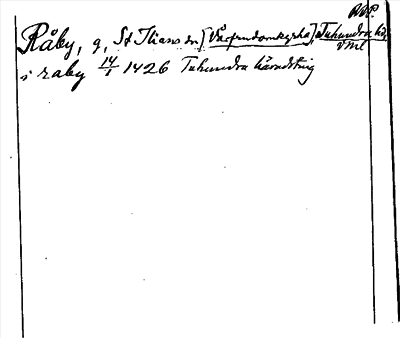 RAP.
Råby, g, St Ilians sn [Vårfrudomkyrko], Tuhundra hd,
Vml
i raby 14/1 1426 Tuhundra häradsting